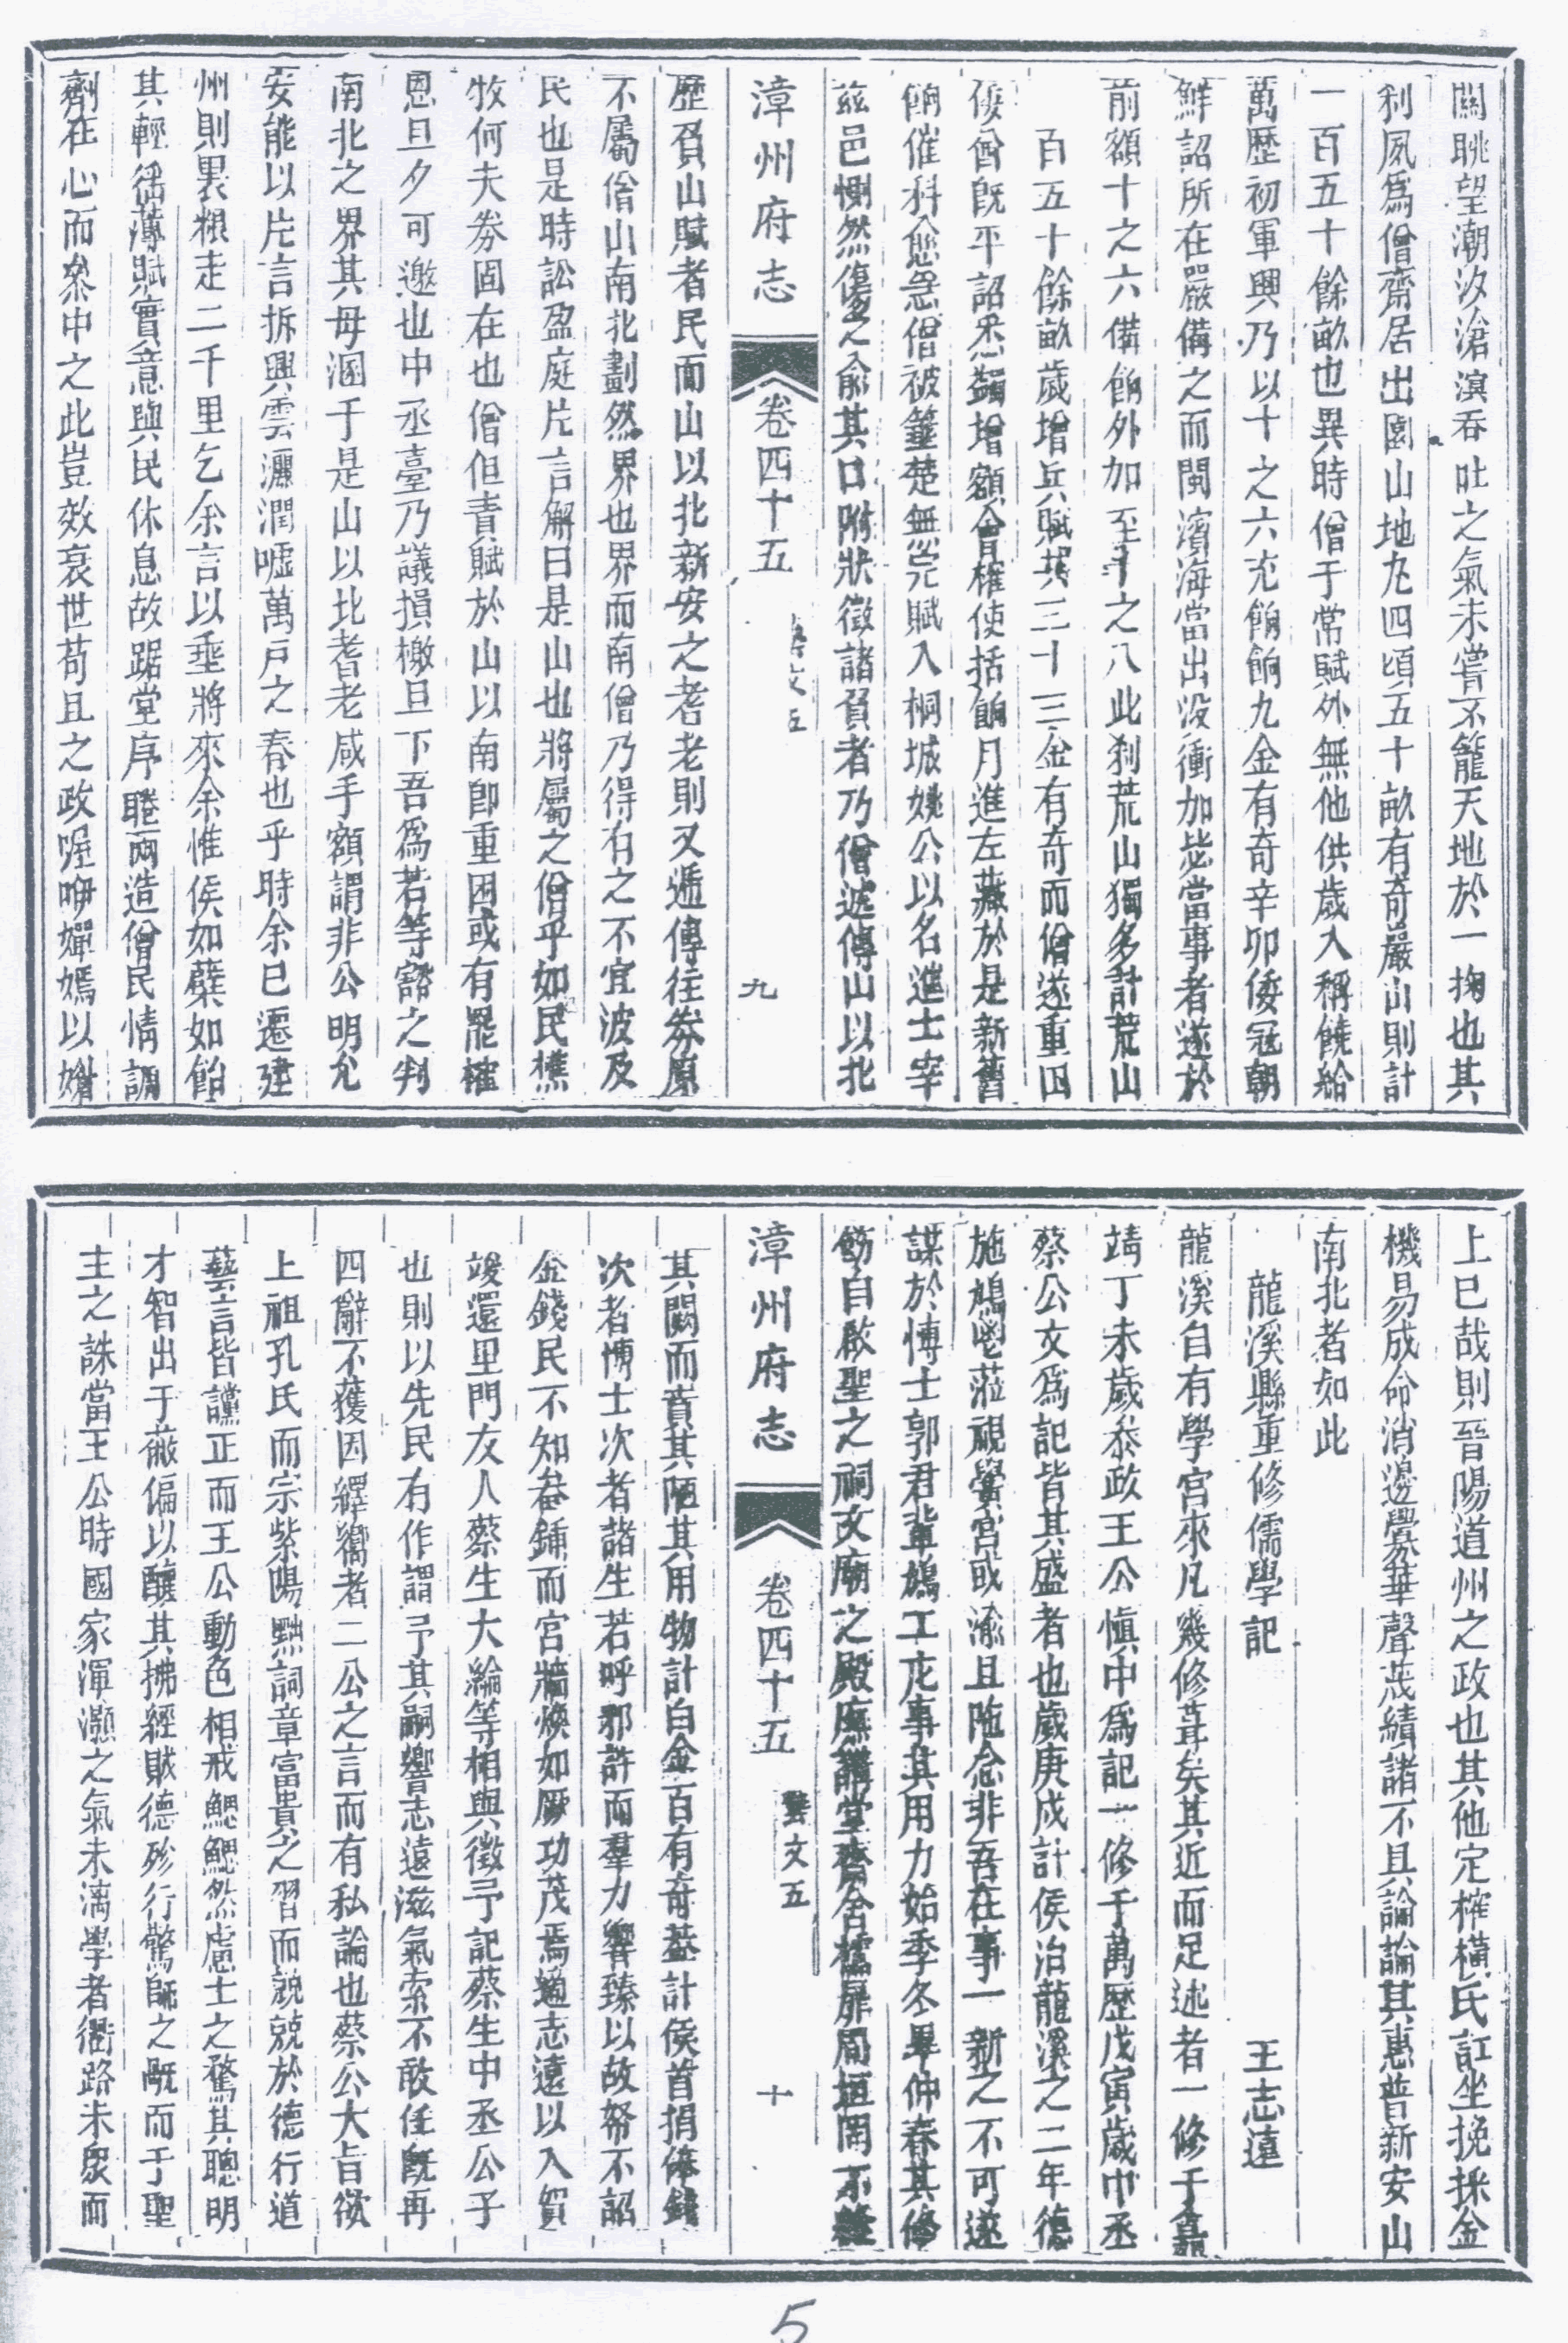 闢眺望潮汐滄溟吞吐之氣未嘗不籠天地於一掬也其
利夙爲僧齋居出園山地九四頃五十畝有奇嚴山則計
一百五十餘畝也異時僧于常賦外無他供歲入稱饒給
萬歷初軍興乃以十之六充餉餉九金有奇辛卯倭冦朝
鮮詔所在嚴備之而閩濱海當出没衝加毖當事者遂於
前額十之六備餉外加至十之八此刹荒山獨多計荒山
百五十餘畝歲增兵賦共三十三金有奇而僧遂重困
倭酋既平詔悉蠲增額會榷使括餉月進左藏於是新舊
餉催科愈急僧被箠楚無完賦入桐城姚公以名進士宰
兹邑惻然傷之俞其口附狀徵諸負者乃僧遞傳山以北
漳州府志
卷四十五
藝文五
九
歷負山賦者民而山以北新安之耆老則又遞傳往劵原
不屬僧山南北劃然界也界而南僧乃得有之不宜波及
民也是時訟盈庭片言解曰是山也將屬之僧乎如民樵
牧何夫劵固在也僧但責賦於山以南卽重困或有罷榷
恩旦夕可邀也中丞臺乃議損檄且下吾爲若等豁之判
南北之界其毋溷于是山以北耆老咸手額謂非公明允
安能以片言拆興雲灑潤噓萬戸之春也乎時余已遷建
州則裹粮走二千里乞余言以垂將來余惟侯如蘖如飴
其輕徭薄賦實意與民休息故踞堂序睠兩造僧民情調
劑在心而叅中之此豈效衰世苟且之政喔咿嬋嫣以媮
上已哉則晉陽道州之政也其他定榷橫氏訌坐挽採金
機易成命消邊釁葢聲茂績諸不具論論其惠普新安山
南北者如此
龍溪縣重修儒學記
王志遠
龍溪自有學宮來凡幾修葺矣其近而足述者一修于嘉
靖丁未歲叅政王公愼中爲記一修于萬歷戊寅歲中丞
蔡公文爲記皆其盛者也歲庚戌計侯治龍溪之二年德
施鳩啓蒞視黌宮或渝且陊念非吾在事一新之不可遂
謀於博士郭君輩鳩工庀事其用力始季冬畢仲春其修
飭自啟聖之祠文廟之殿廡講堂齋舍櫺扉周垣罔不整
漳州府志
卷四十五
藝文五
十
其闕而賁其陋其用物計白金百有奇葢計侯首捐俸錢
次者博士次者諸生若呼邪許而羣力響臻以故帑不詔
金錢民不知畚鍤而宮牆煥如厥功茂焉適志遠以入賀
竣還里門友人蔡生大綸等相與徵予記蔡生中丞公子
也則以先民有作謂予其嗣響志遠滋氣索不敢任既再
四辭不獲因繹嚮者二公之言而有私論也蔡公大旨欲
上祖孔氏而宗紫陽黜詞章富貴之習而兢兢於德行道
藝言皆讜正而王公動色相戒鰓鰓然慮士之騖其聰明
才智出于㢘偏以釀其拂經賊德殄行驚師之嘅而于聖
主之誅當王公時國家渾灝之氣未漓學者衢路未衆而